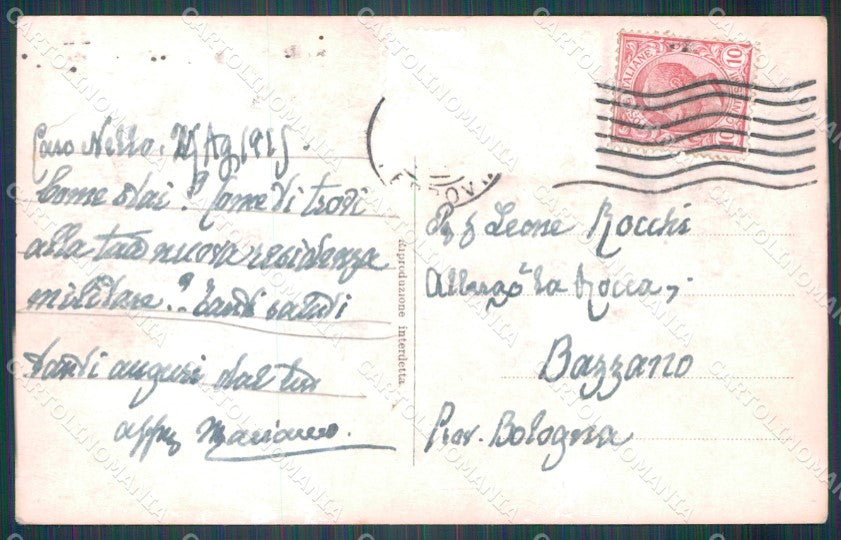 Caro Nello. 25/Ag/1915.
Come stai? Come ti trovi
alla tua nuova residenza
militare? Tanti saluti
tanti auguri dal tuo
affmo Mariano.
Riproduzione interdetta
10
10
Leone Rocchi
Albergo "la Rocca,,
Bazzano
Prov. Bologna
CARTOLINOMANIA